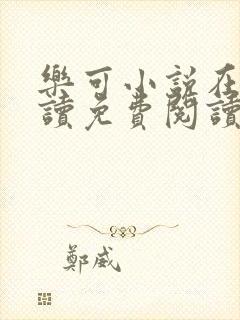 樂可小說在
讀免費閱讀
鄭威